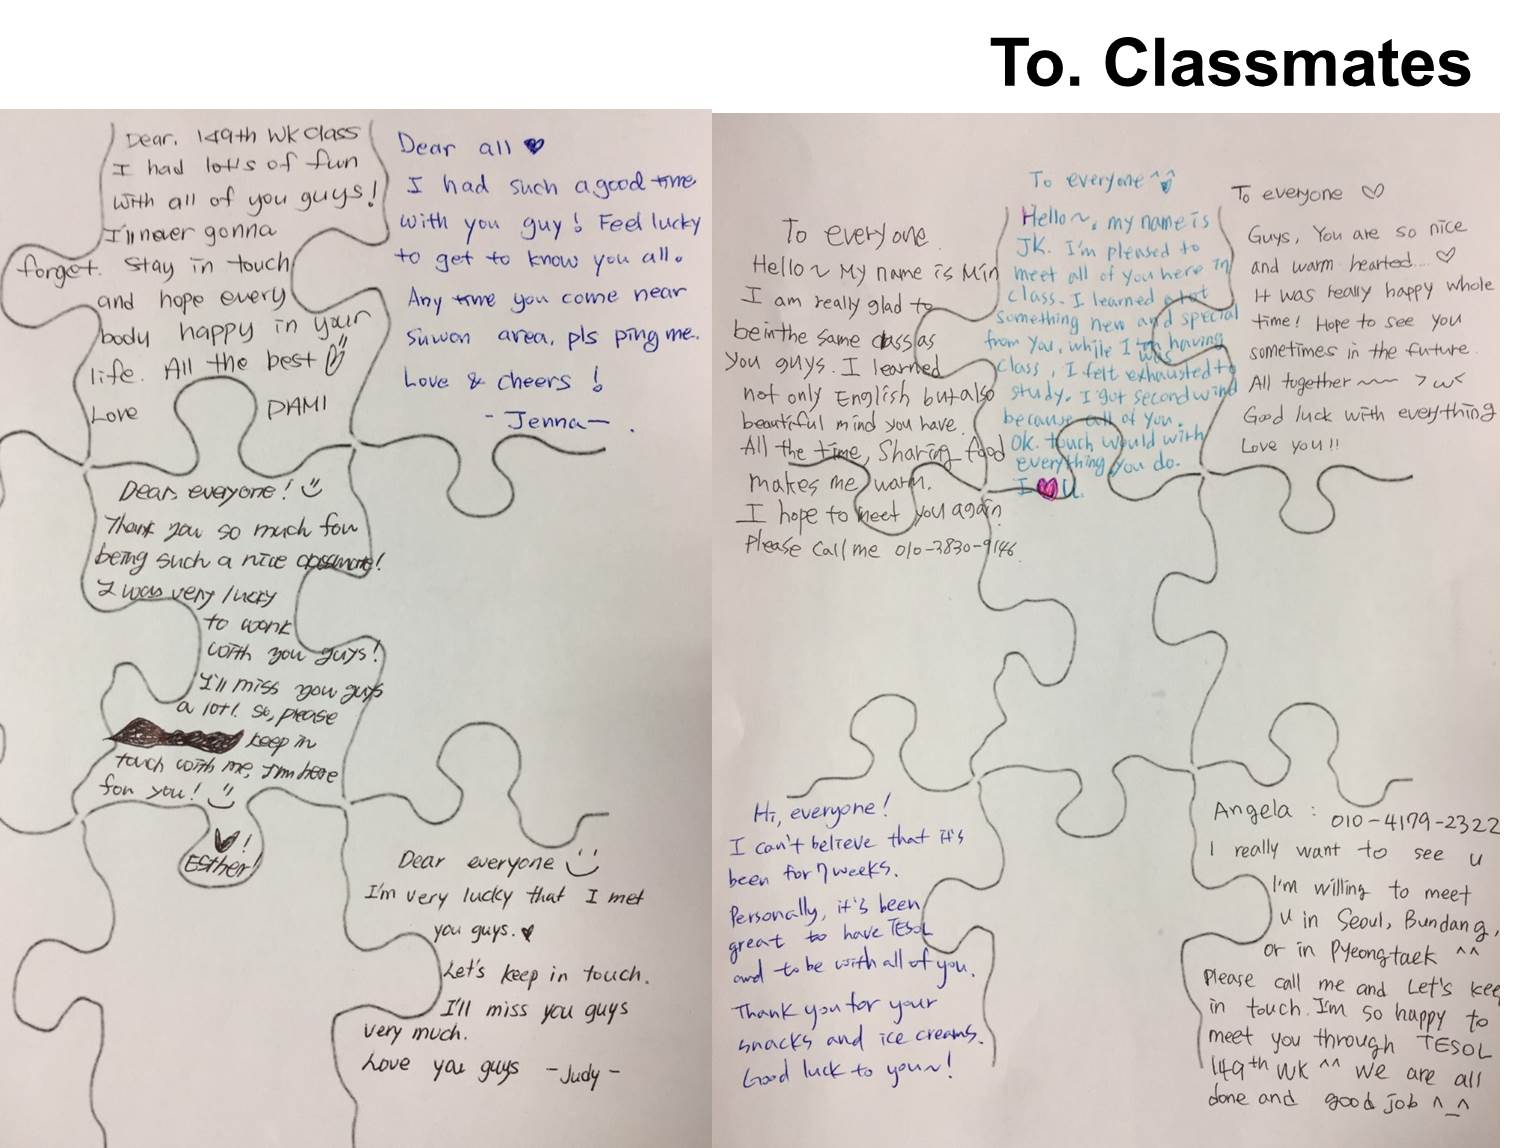 To. Classmates
Dear, 149th WK Class
I had lot's of fun
with all of you guys!
I'll never gonna
forget. Stay in touch
and hope every
body happy in your
life. All the best
Love DAMI
Dear all ♥
I had such a good time
with you guy! Feel lucky
to get to know you all.
Any time you come near
Suwon area, pls ping me.
Love & cheers!
- Jenna - .
Dear, everyone! ☺
Thank you so much for
being such a nice classmate!
I was very lucky
to work
with you guys!
I'll miss you guys
a lot! So, please
keep in
touch with me, I'm here
for you! ☺
♥!
Esther!
Dear everyone ☺
I'm very lucky that I met
you guys. ♥
Let's keep in touch.
I'll miss you guys
very much.
Love you guys - Judy -
To everyone.
Hello ~ My name is Min
I am really glad to
be in the same class as
you guys. I learned
not only English but also
beautiful mind you have.
All the time, Sharing food
makes me warm.
I hope to meet you again
Please call me 010-3830-9146
To everyone ^^
Hello~, my name is
JK. I'm pleased to
meet all of you here in
class. I learned a lot
something new and special
from you, while I was having
class, I felt exhausted to
study. I got second wind
because all of you.
OK. touch would with
everything you do.
I ♥ U.
To everyone ♡
Guys, You are so nice
and warm hearted... ♡
It was really happy whole
time! Hope to see you
sometimes in the future.
All together ~~~ >w<
Good luck with everything
Love you!!
Hi, everyone!
I can't believe that it's
been for 7 weeks.
Personally, it's been
great to have TESOL
and to be with all of you.
Thank you for your
snacks and ice creams.
Good luck to you~!
Angela : 010-4179-2322
I really want to see u
I'm willing to meet
u in Seoul, Bundang,
or in Pyeongtaek ^^
Please call me and Let's keep
in touch. I'm so happy to
meet you through TESOL
149th WK ^^ We are all
done and good job ^_^